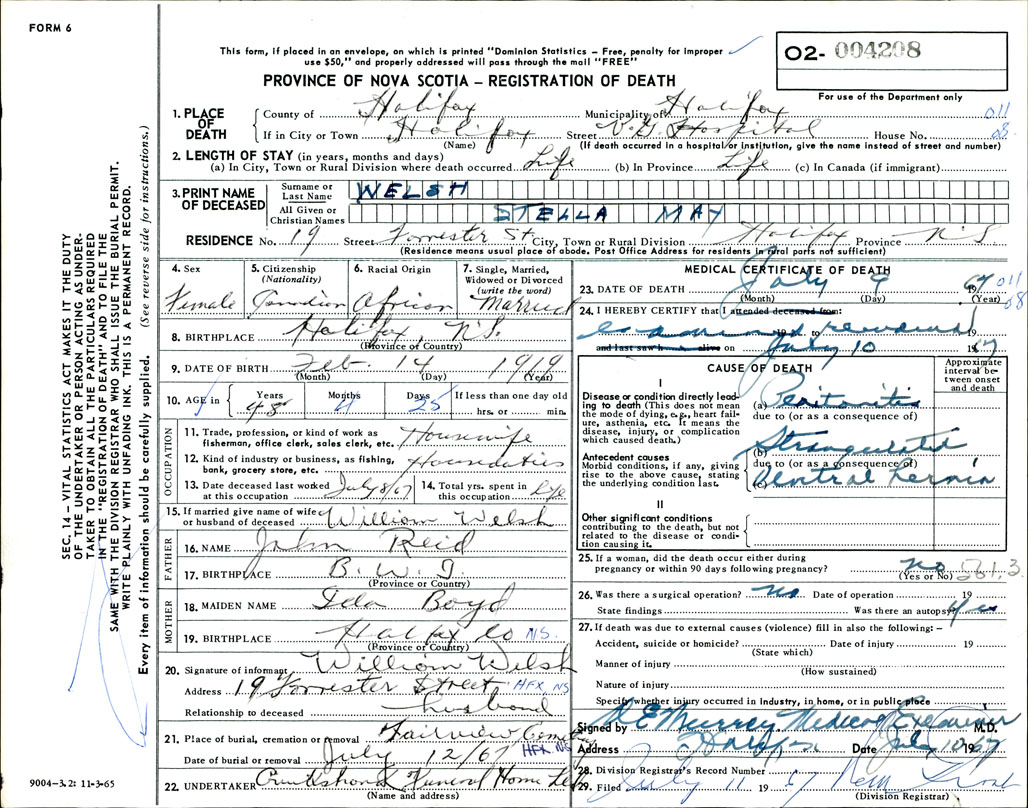 FORM 6
This form, if placed in an envelope, on which is printed "Dominion Statistics – Free, penalty for improper
use $50," and properly addressed will pass through the mail "FREE"
O2- 004208
For use of the Department only
PROVINCE OF NOVA SCOTIA – REGISTRATION OF DEATH
1. PLACE OF DEATH County of Halifax Municipality of Halifax 011
If in City or Town Halifax Street V.G. Hospital House No. 08
(Name) (If death occurred in a hospital or institution, give the name instead of street and number)
2. LENGTH OF STAY (in years, months and days)
(a) In City, Town or Rural Division where death occurred Life (b) In Province Life (c) In Canada (if immigrant)
3. PRINT NAME OF DECEASED Surname or Last Name WELSH
All Given or Christian Names STELLA MAY
RESIDENCE No. 19 Street Forrester St. City, Town or Rural Division Halifax Province N.S
(Residence means usual place of abode. Post Office Address for residents in rural parts not sufficient)
4. Sex Female
5. Citizenship (Nationality) Canadian
6. Racial Origin African
7. Single, Married, Widowed or Divorced (write the word) Married
8. BIRTHPLACE Halifax, N.S.
(Province or Country)
9. DATE OF BIRTH Feb. 14 1919
(Month) (Day) (Year)
10. AGE in Years 48 Months 4 Days 25 If less than one day old hrs. or min.
OCCUPATION
11. Trade, profession, or kind of work as fisherman, office clerk, sales clerk, etc. Housewife
12. Kind of industry or business, as fishing, bank, grocery store, etc. Houseduties
13. Date deceased last worked at this occupation July 8/67
14. Total yrs. spent in this occupation Life
15. If married give name of wife or husband of deceased William Welsh
FATHER
16. NAME John Reid
17. BIRTHPLACE B.W.I.
(Province or Country)
MOTHER
18. MAIDEN NAME Ida Boyd
19. BIRTHPLACE Halifax Co NS.
(Province or Country)
20. Signature of informant William Welsh
Address 19 Forrester Street HFX NS
Relationship to deceased husband
21. Place of burial, cremation or removal Fairview Cemetery HFX NS
Date of burial or removal July 12/67
22. UNDERTAKER Cruikshank Funeral Home Ltd
(Name and address)
MEDICAL CERTIFICATE OF DEATH
23. DATE OF DEATH July 9 1967 011
(Month) (Day) (Year) 08
24. I HEREBY CERTIFY that I attended deceased from:
examined 19 to remains 19
and last saw h alive on July 10 1967
CAUSE OF DEATH
Approximate interval between onset and death
I
Disease or condition directly leading to death (This does not mean the mode of dying, e.g., heart failure, asthenia, etc. It means the disease, injury, or complication which caused death.)
(a) Peritonitis
due to (or as a consequence of)
Antecedent causes
Morbid conditions, if any, giving rise to the above cause, stating the underlying condition last.
(b) Strangulated
due to (or as a consequence of)
(c) Ventral hernia
II
Other significant conditions
contributing to the death, but not related to the disease or condition causing it.
25. If a woman, did the death occur either during
pregnancy or within 90 days following pregnancy? No 561.3
(Yes or No)
26. Was there a surgical operation? No Date of operation 19
State findings Was there an autopsy? Yes
27. If death was due to external causes (violence) fill in also the following: –
Accident, suicide or homicide? Date of injury 19
(State which)
Manner of injury
(How sustained)
Nature of injury
Specify whether injury occurred in Industry, in home, or in public place
Signed by R E Murray Medical Examiner M.D.
Address Halifax Date July 10 1967
28. Division Registrar's Record Number
29. Filed July 11 1967
(Division Registrar)
SEC. 14 – VITAL STATISTICS ACT MAKES IT THE DUTY
OF THE UNDERTAKER OR PERSON ACTING AS UNDER-
TAKER TO OBTAIN ALL THE PARTICULARS REQUIRED
IN THE "REGISTRATION OF DEATH" AND TO FILE THE
SAME WITH THE DIVISION REGISTRAR WHO SHALL ISSUE THE BURIAL PERMIT.
WRITE PLAINLY WITH UNFADING INK. THIS IS A PERMANENT RECORD.
Every item of information should be carefully supplied. (See reverse side for instructions.)
9004–3.2: 11-3-65